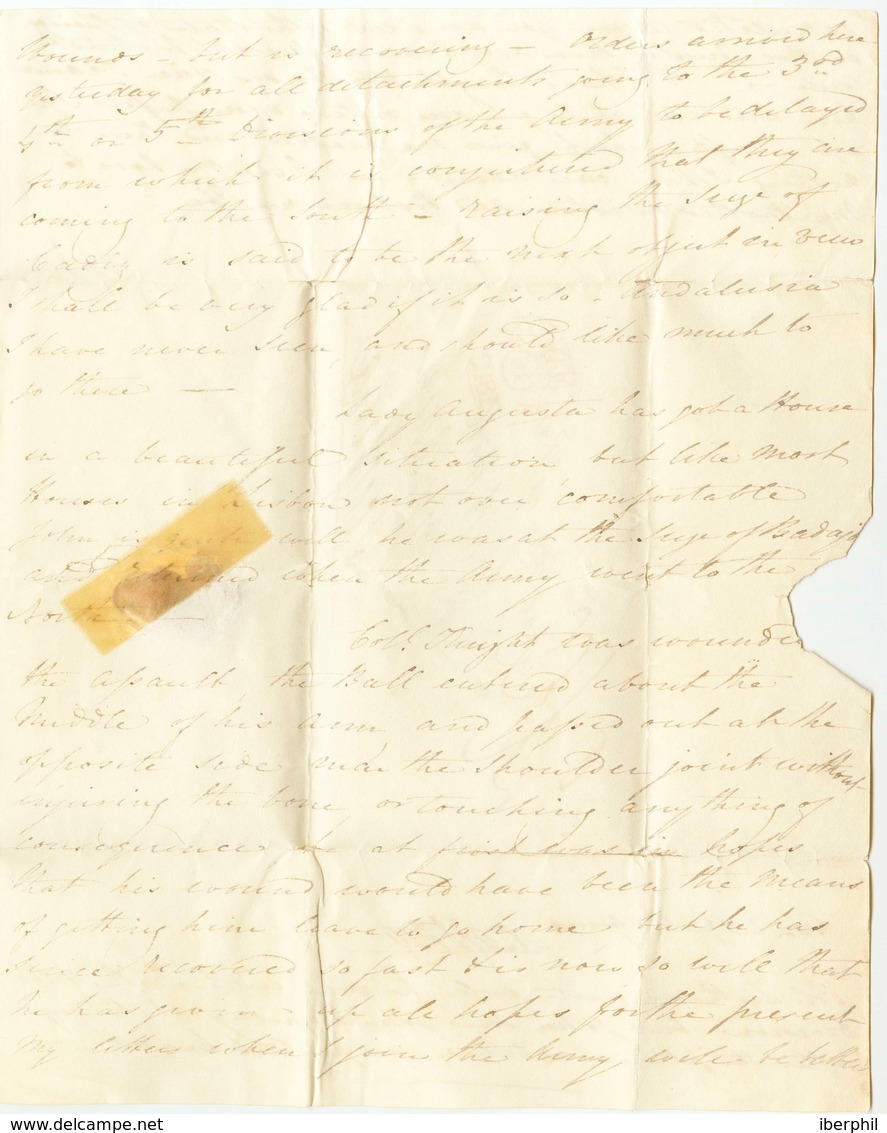 Wounds – but is recovering – Orders arrived here
yesterday for all detachments going to the 3rd
4th or 5th Divisions of the Army to be delayed
from which it is conjectured that they are
coming to the South – raising the Siege of
Cadiz is said to be the next object in view
I shall be very glad if it is so – Andalusia
I have never seen, and should like much to
go there —
Lady Augusta has got a House
in a beautiful situation but like most
Houses in Lisbon not over comfortable
John is quite well he was at the Siege of Badajo
and returned when the Army went to the
North —
Coll. Knight was wounde
the assault, the Ball entered about the
Middle of his arm and passed out at the
opposite side near the shoulder joint without
injuring the bone, or touching anything of
consequence he at first was in hopes
that his wound would have been the means
of getting him leave to go home but he has
since recovered so fast & is now so well that
he has given – up all hopes for the present
My letters when I join the Army will be better
iberphil
www.delcampe.net